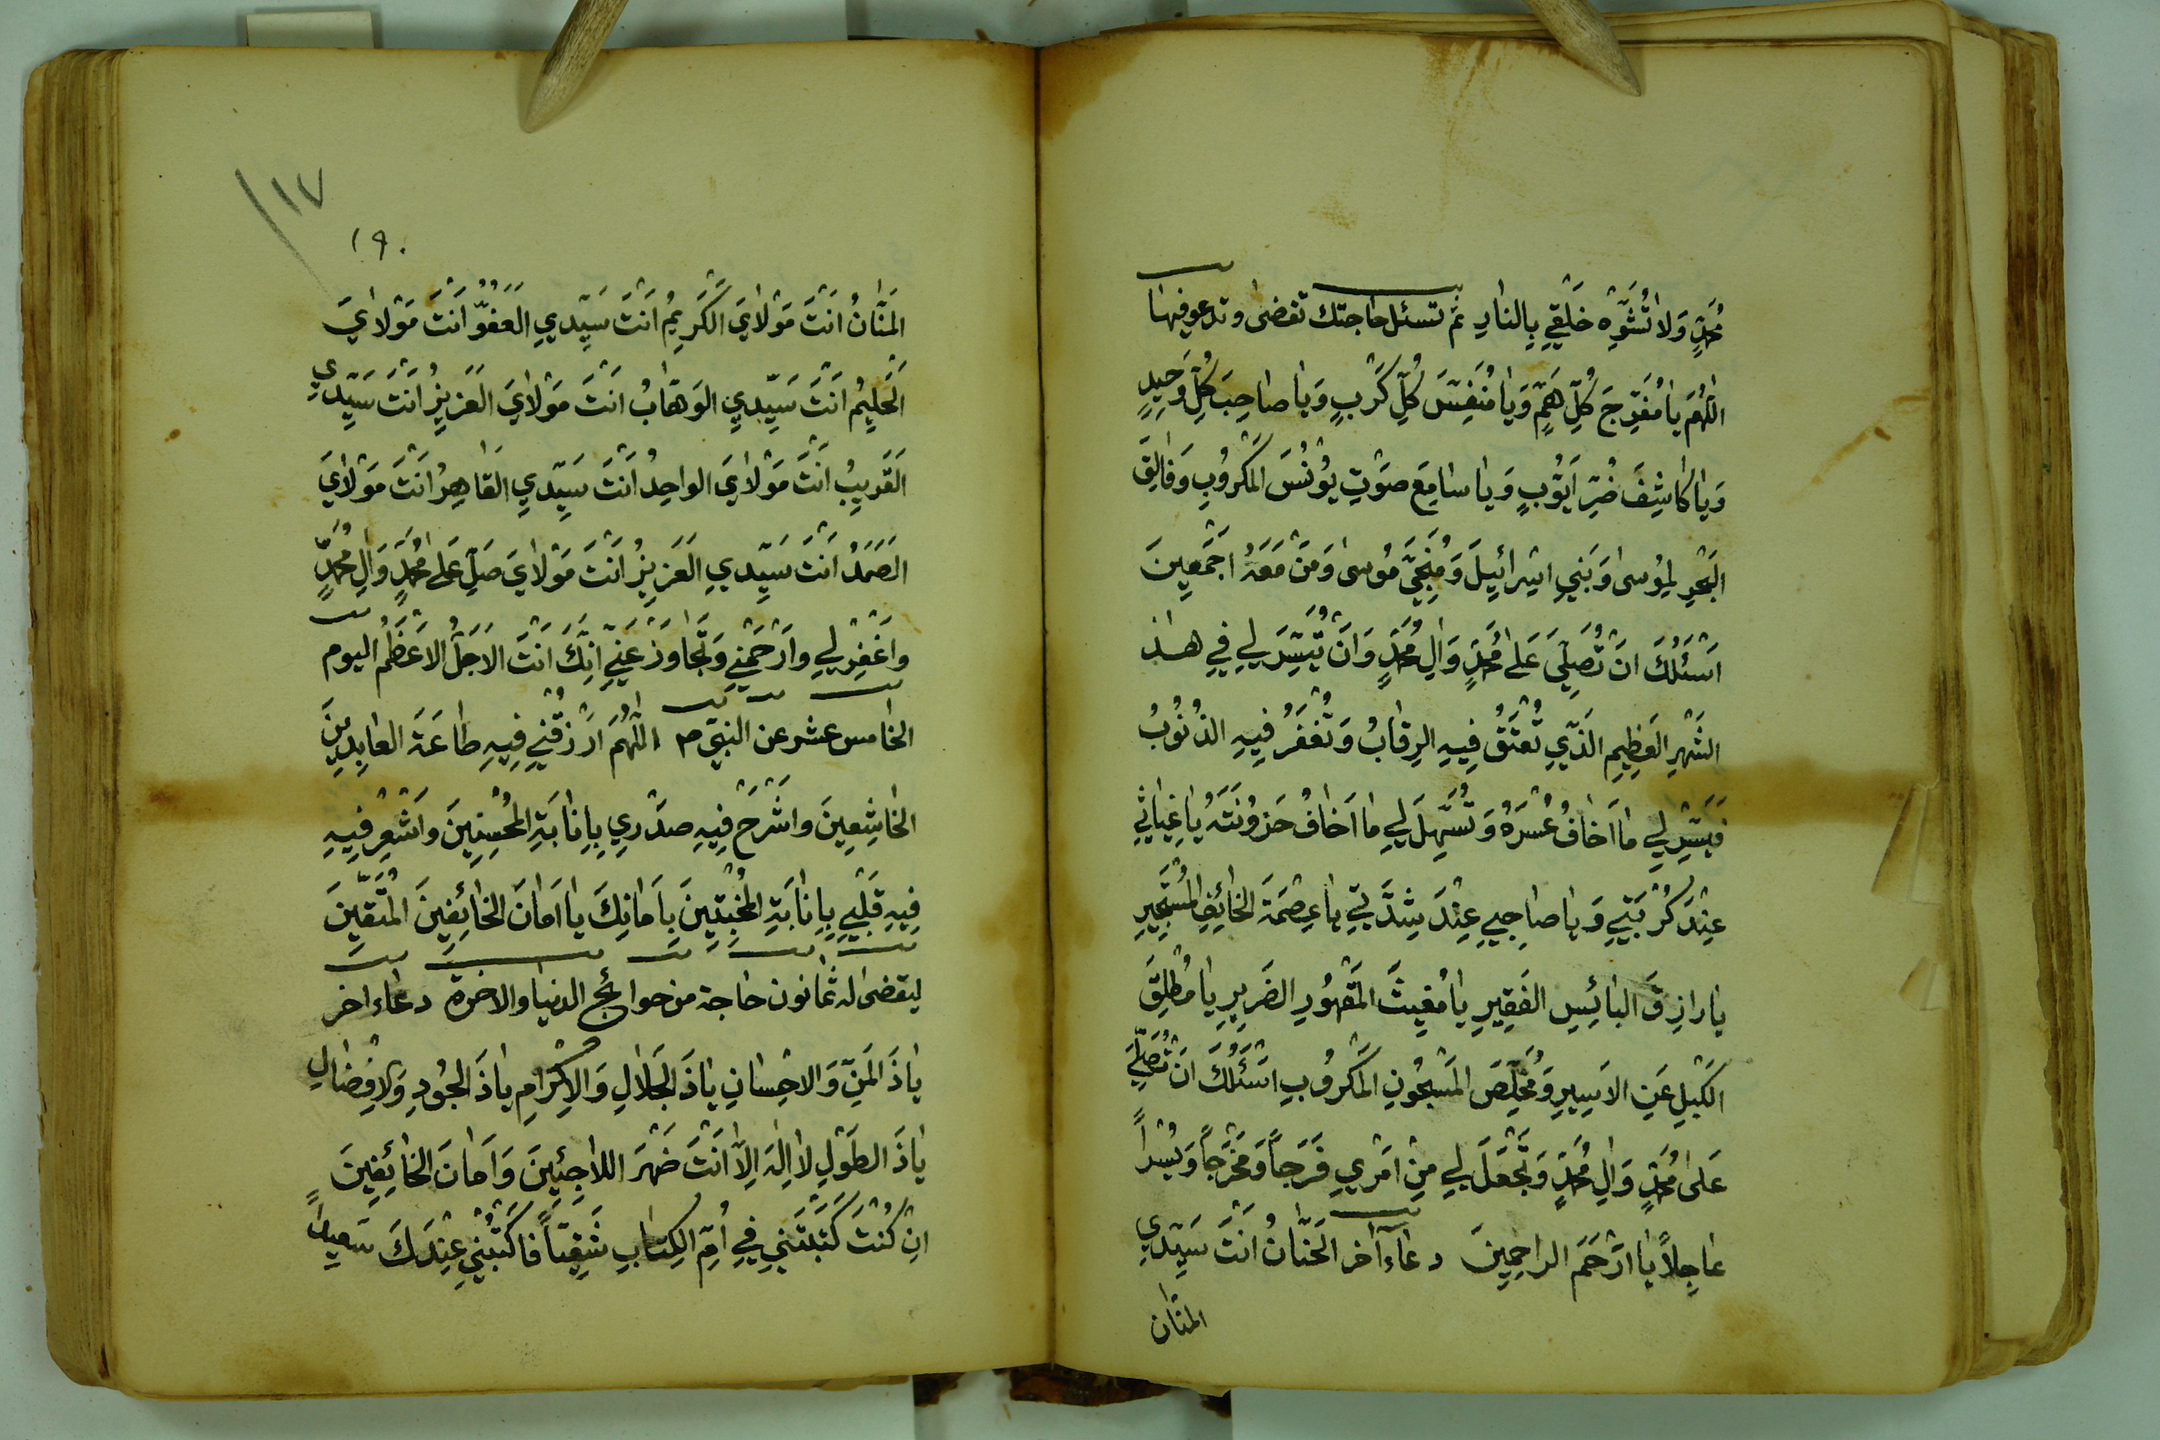 مُحَمَّدٍ وَلا تُشَوِّه خَلْقِي بِالنارِ ثم تسئل حاجتك تقضى وتدعو فيها
اللّهُمَ يا مُفَرِّجَ كُلِّ هَمٍّ وَيا مُنَفِسَ كُلِّ كَرْبٍ وَيا صاحِبَ كُلِّ وَحِيدٍ
وَيا كاشِفَ ضُرِّ اَيُّوبٍ وَيا سامِعَ صَوْتِ يُوْنُسَ المَكْرُوبِ وَفالِقَ
البَحْرِ لِمُوسى وَبَنيِ اسْرائيِلَ وَمُنْجِيَ مُوسى وَمَنْ مَعَهُ اَجْمَعِينَ
اسْئَلُكَ انْ تُصَلِّيَ عَلى مُحَمَّدٍ وَالِ مُحَمَّدٍ وَانْ تُيَسِّرَ لِي فِي هذ
الشَهْرِ العَظِيمِ الَذّيِ تُعْتَقُ فِيهِ الرِقابُ وَتُغْفَرُ فِيهِ الذُنُوبُ
فَيَسِّر لِي ما اَخافُ عُسْرَهُ وَتُسَهِّلَ لِي ما اَخافُ حَزُونَتَهُ يا غِياثي
عِنْدَ كُرْبَتِي وَيا صاحِبِي عِنْدَ شِدَّتِي يا عِصْمَةَ الخائِفِ المُسْتَجِيرِ
يا رازِقَ البائِسِ الفَقِيرِ يا مُغِيثَ المَقْهُورِ الضَرِيرِ يا مُطْلِقَ
الكَبْلِ عَنِ الاَسِيرِ وَمُخَلِّصَ المَسْجُونِ المَكْرُوبِ اسْئَلُكَ انْ تُصَلِّيَ
عَلى مُحَمَّدٍ وَالِ مُحَمَّدٍ وَتَجْعَلَ لِي مِنْ امْرِي فَرَجاً وَمَخْرَجاً وَيُسْراً
عاجِلاً يا ارْحَمَ الراحِمِينَ دعاء آخر الحَنّانُ انْتَ سَيِّدِي
المنّان
١١٧
١٩٠
المَنّانُ انْتَ مَوْلايَ الكَرِيمُ انْتَ سَيِّدِي العَفُوّ انْتَ مَوْلايَ
الحَلِيمُ انْتَ سَيِّدِي الوَهّابُ انْتَ مَوْلايَ العَزِيزُ انْتَ سَيِّدِي
القَرِيبُ انْتَ مَوْلايَ الواحِدُ انْتَ سَيِّدِي القاهِرُ انْتَ مَوْلايَ
الصَمَدُ انْتَ سَيِّدِي العَزِيزُ انْتَ مَوْلايَ صَلِّ عَلى مُحَمَّدٍ وَالِ مُحَمَّدٍ
وَاغْفِرْ لِي وارْحَمْنِي وَتَجاوَزْ عَنِّي اِنَّكَ انْتَ الاَجَلُّ الاَعْظَمُ اليوم
الخامس عشر عن النبيّ ص اللّهُمَ ارْزُقْنِي فِيهِ طاعَةَ العابِدِينَ
الخاشِعِينَ واشْرَحْ فِيهِ صَدْرِي بِاِنابَةِ المُحْسِنِينَ واشْعِرْ فِيهِ
فِيهِ قَلْبِي بِاِنابَةِ المُخْبِتِينَ بِاَمانِكَ يا اَمانَ الخائِفِينَ المُتَقِّينَ
ليقضى له ثمانون حاجة من حوائج الدنيا والاخرة دعاء اخر
يا ذَ المَنِّ وَالاحْسانِ يا ذَ الجَلالِ وَالاِكْرامِ يا ذَ الجُودِ وَالافْضالِ
يا ذَ الطَوْلِ لا اِلهَ اِلاّ انْتَ ضَهْرَ اللاجِئِينَ وَاَمانَ الخائِفِينَ
انْ كُنْتَ كَتَبْتَنِي فِي اُمِّ الكِتابِ شَقِيّاً فاكْتُبْنِي عِنْدَكَ سَعِيداً